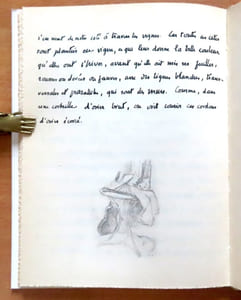 s'en vont de notre côté à travers les vignes. Les
sont plantées de vignes, ce qui leur donne la belle couleur
qu'elles ont l'hiver, avant qu'elle ait mis ses feuilles,
rousse ou dorée ou fauve, avec des lignes blanches, trans-
versales et parallèles, qui sont des murs. Comme, dans
une corbeille d'osier brut, on voit courir ces cordons
d'osier écorcé.